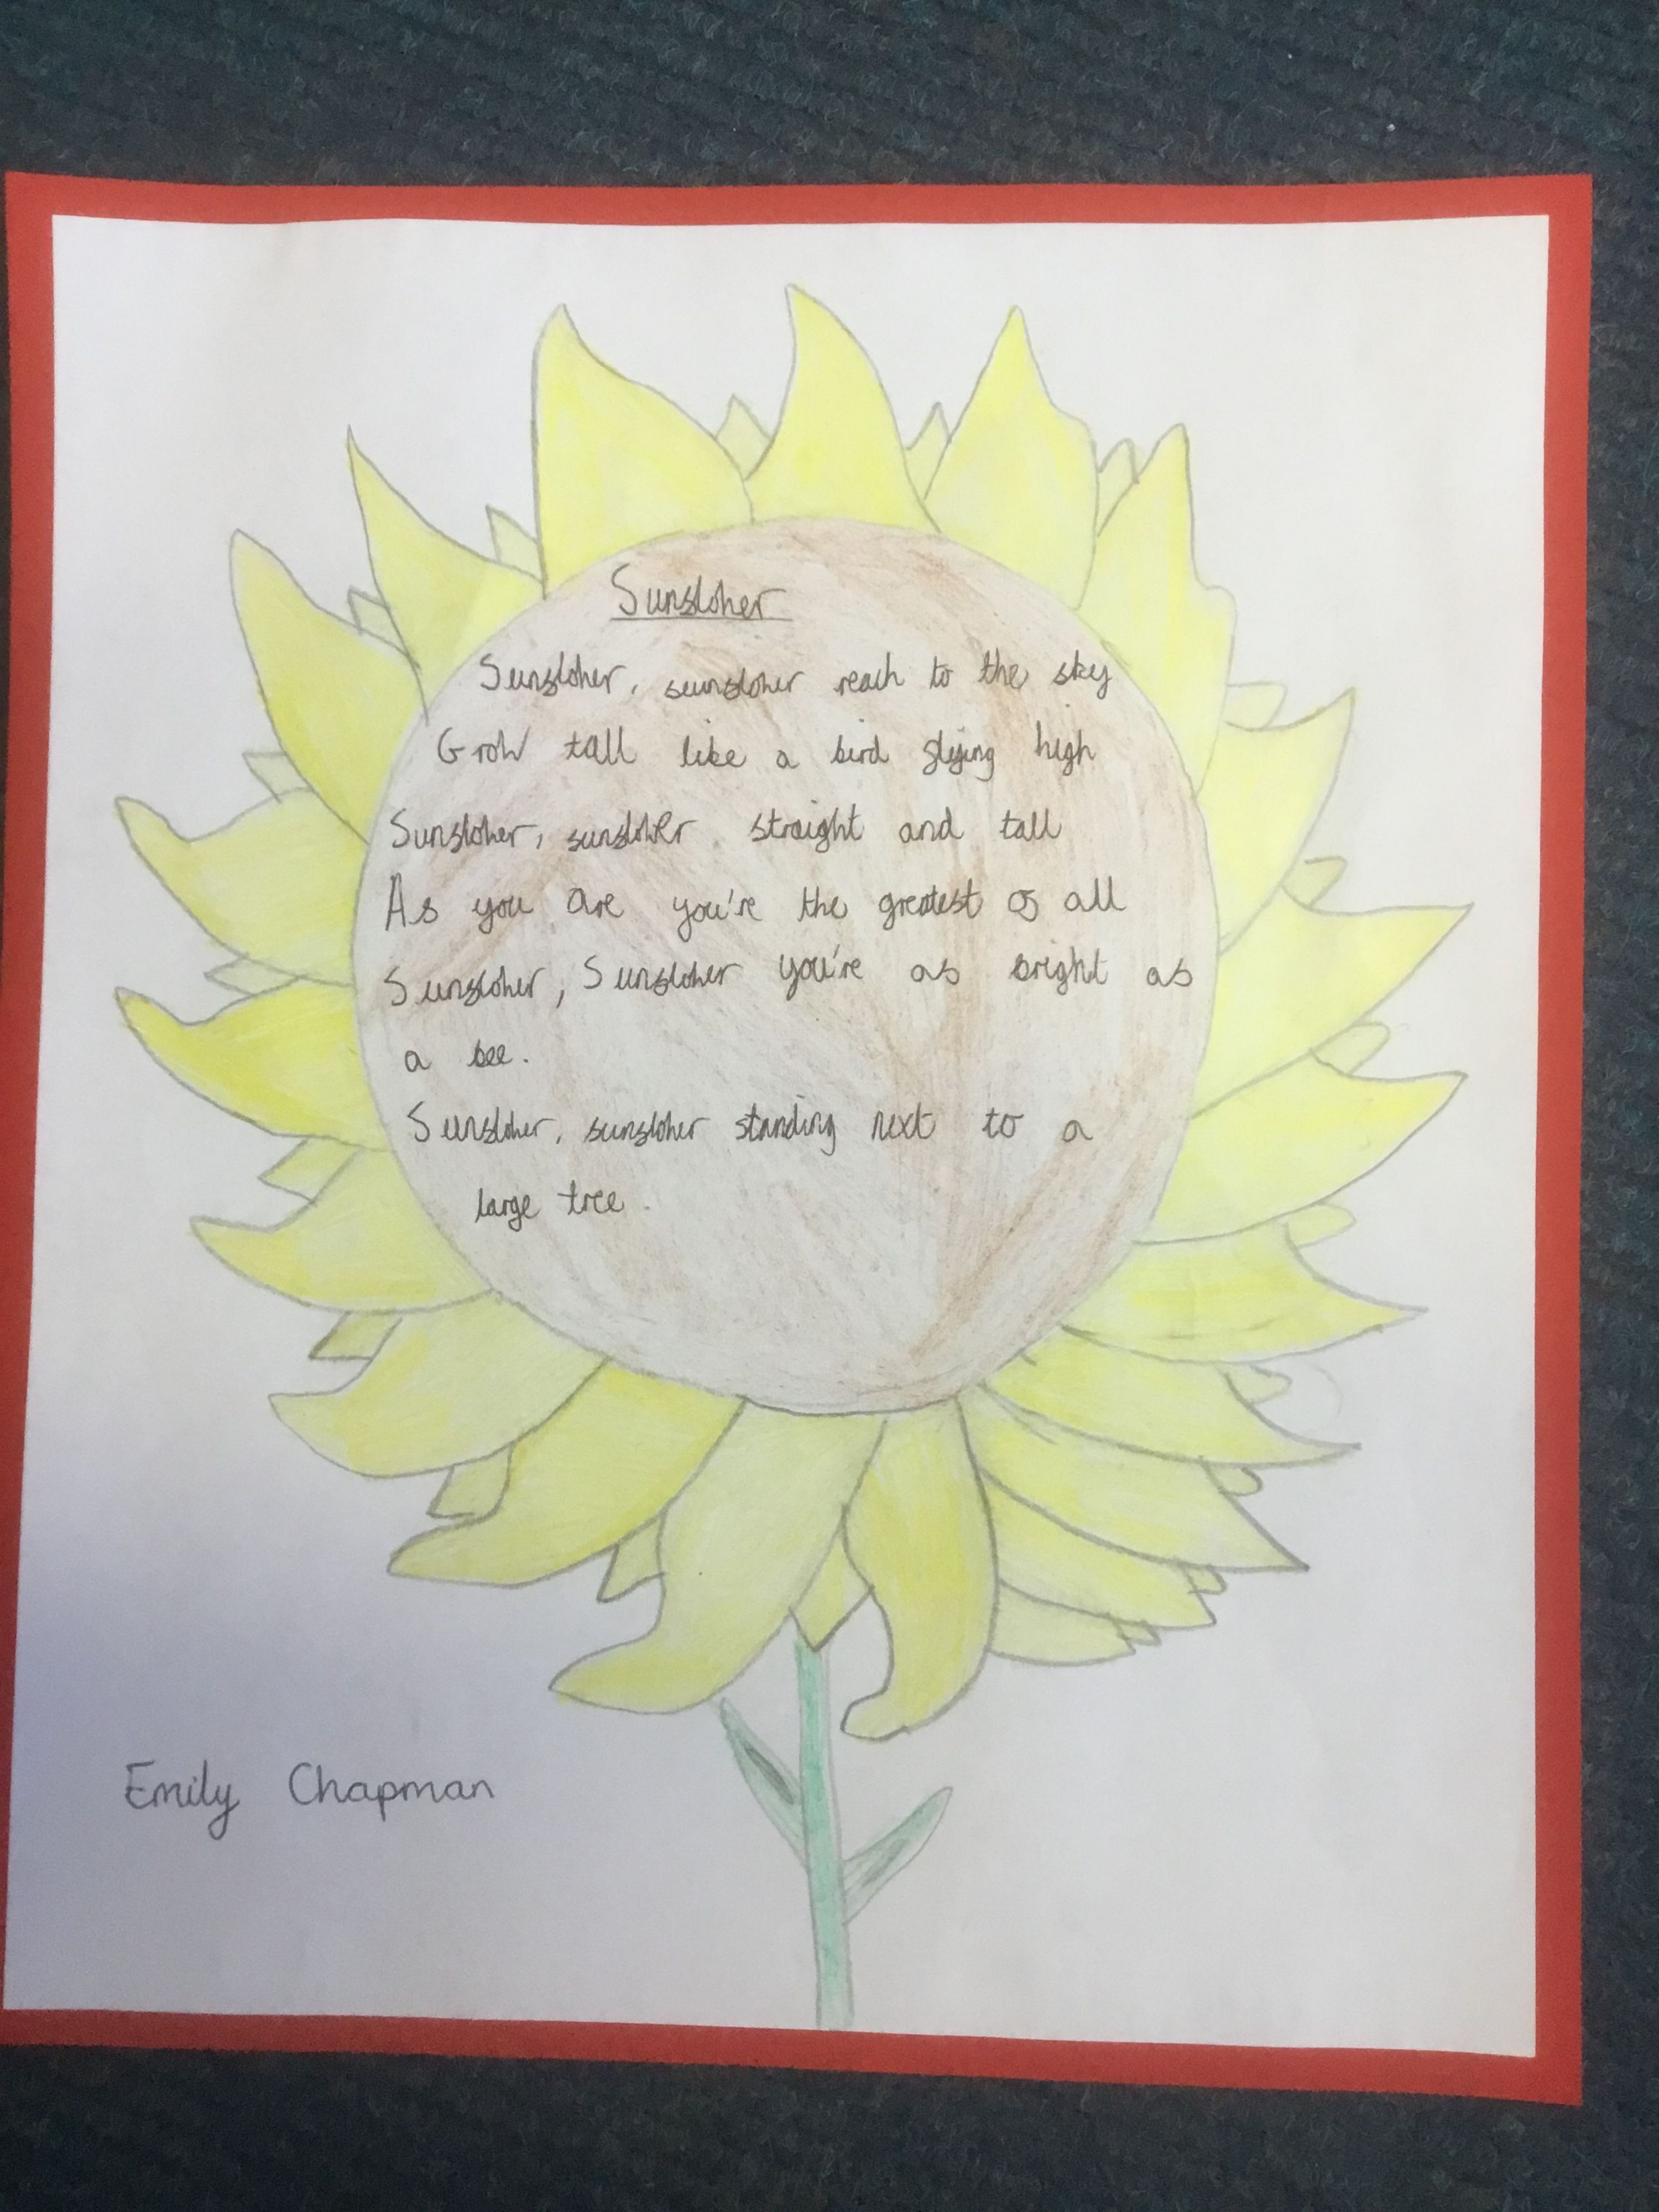 Sunflower
Sunflower, sunflower reach to the sky
Grow tall like a bird flying high
Sunflower, sunflower straight and tall
As you are you're the greatest of all
Sunflower, Sunflower you're as bright as
a bee.
Sunflower, sunflower standing next to a
large tree.
Emily Chapman